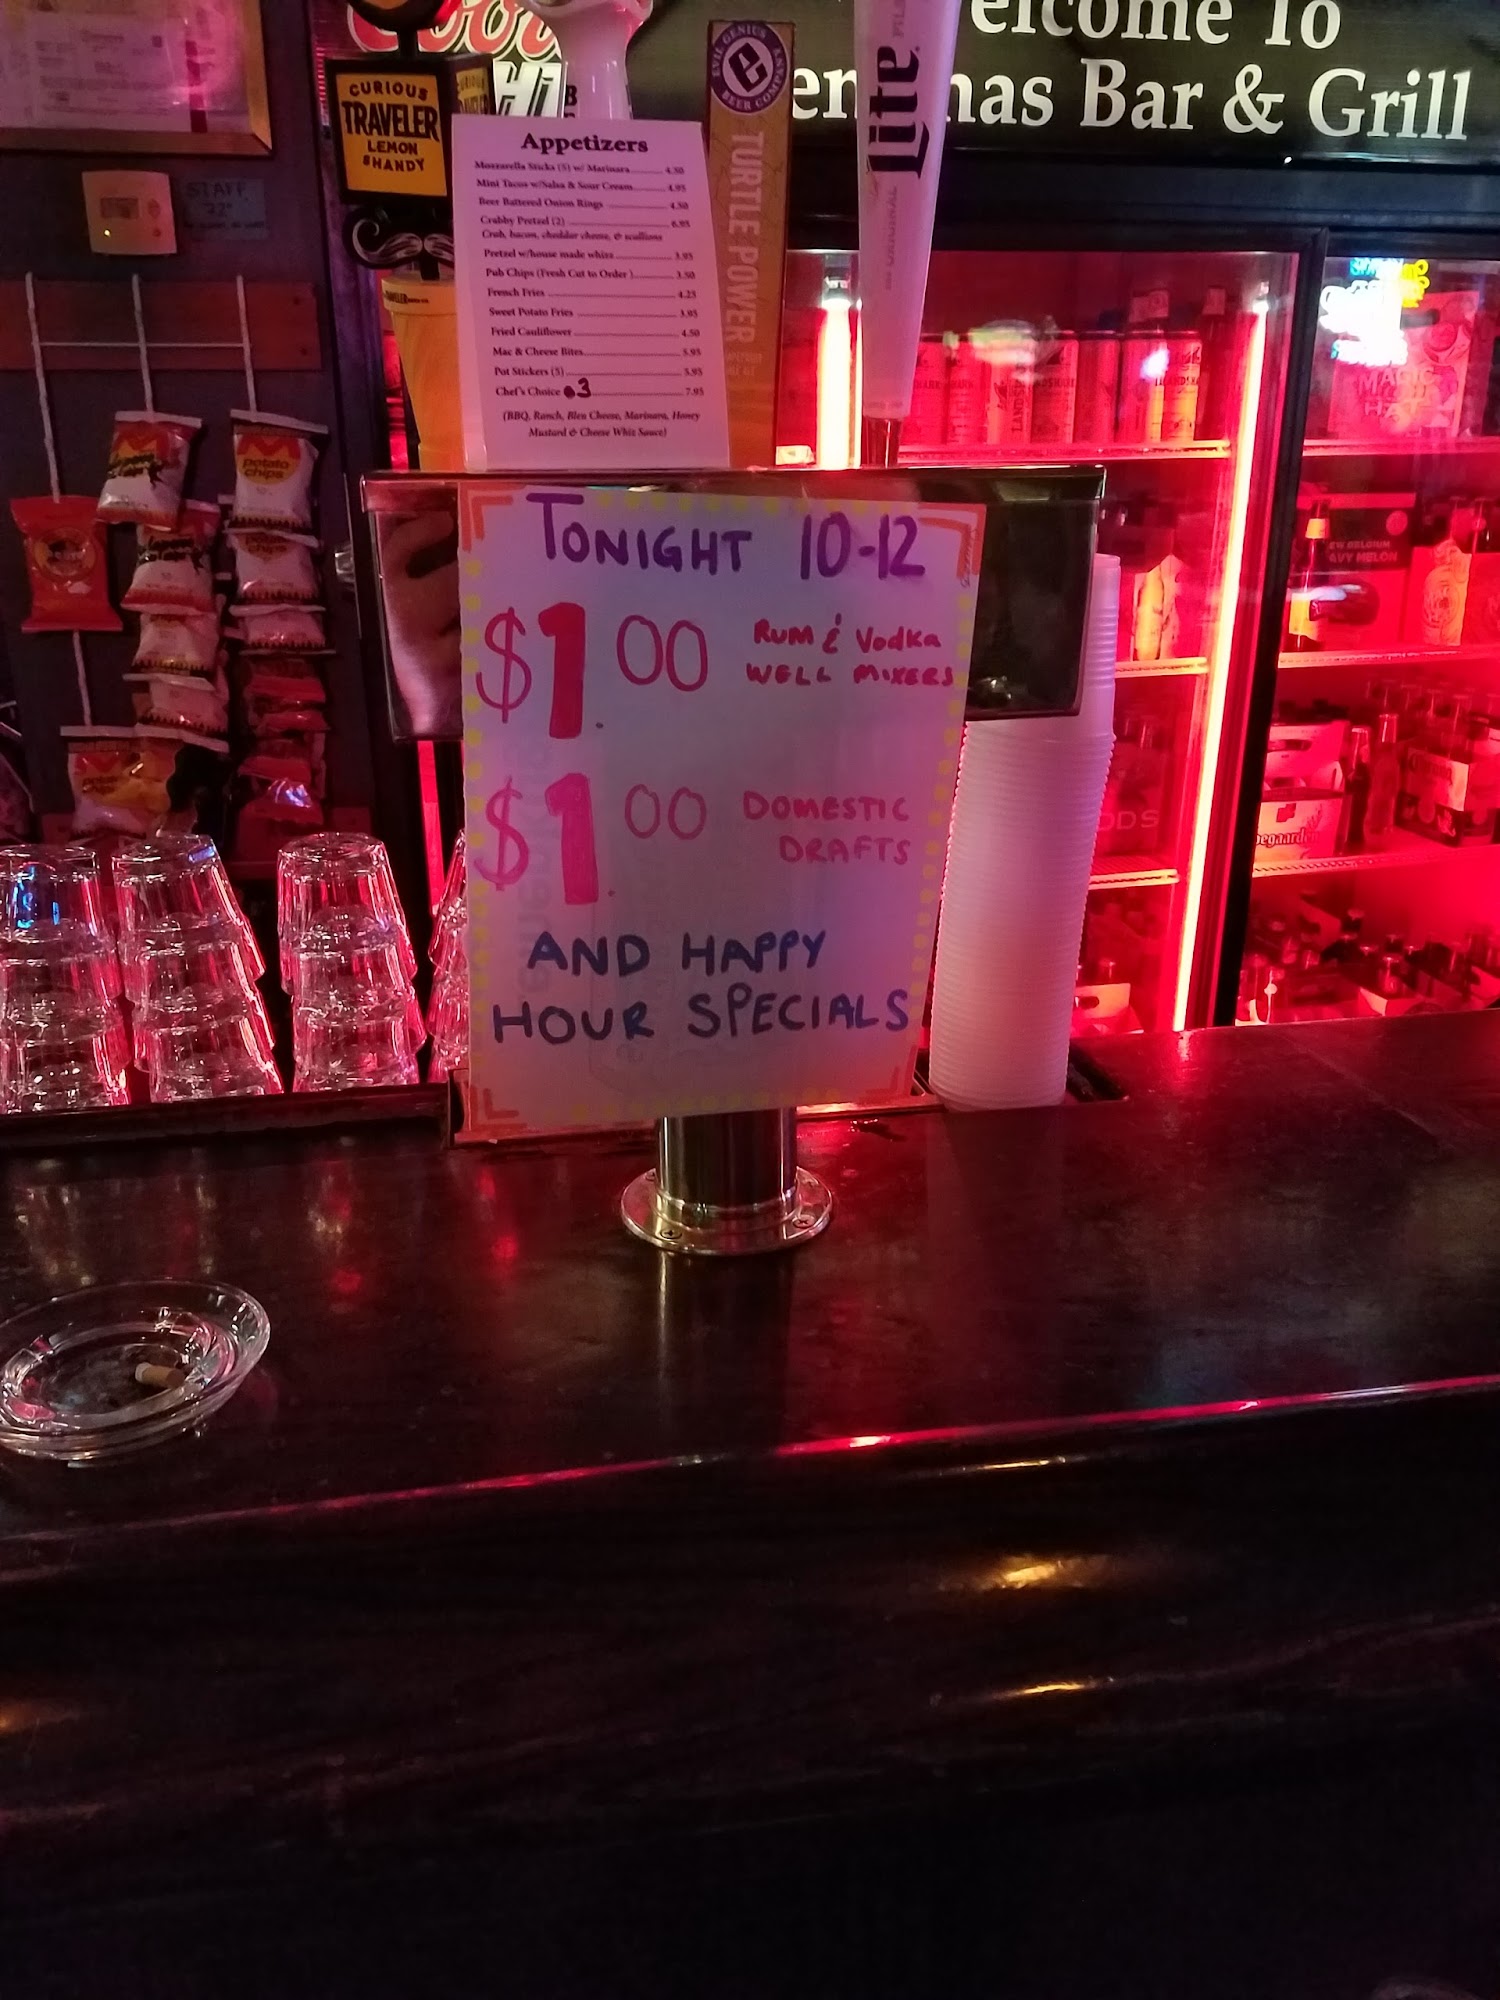 Coors
elcome To
en nas Bar & Grill
CURIOUS
TRAVELER
LEMON
SHANDY
STAFF
"72"
EVIL GENIUS
BEER COMPANY
TURTLE POWER
Lite
ORIGINAL
Appetizers
Mozzarella Sticks (5) w/ Marinara 4.50
Mini Tacos w/Salsa & Sour Cream 4.95
Beer Battered Onion Rings 4.50
Crabby Pretzel (2) 6.95
Crab, bacon, cheddar cheese, & scallions
Pretzel w/house made whiz 3.95
Pub Chips (Fresh Cut to Order) 3.50
French Fries 4.25
Sweet Potato Fries 3.95
Fried Cauliflower 4.50
Mac & Cheese Bites 5.95
Pot Stickers (5) 5.95
Chef's Choice 3 7.95
(BBQ, Ranch, Bleu Cheese, Marinara, Honey
Mustard & Cheese Whiz Sauce)
potato
chips
MAGIC
HAT
TONIGHT 10-12
$1.00 RUM & Vodka
WELL MIXERS
$1.00 DOMESTIC
DRAFTS
AND HAPPY
HOUR SPECIALS
Corona
egaarden